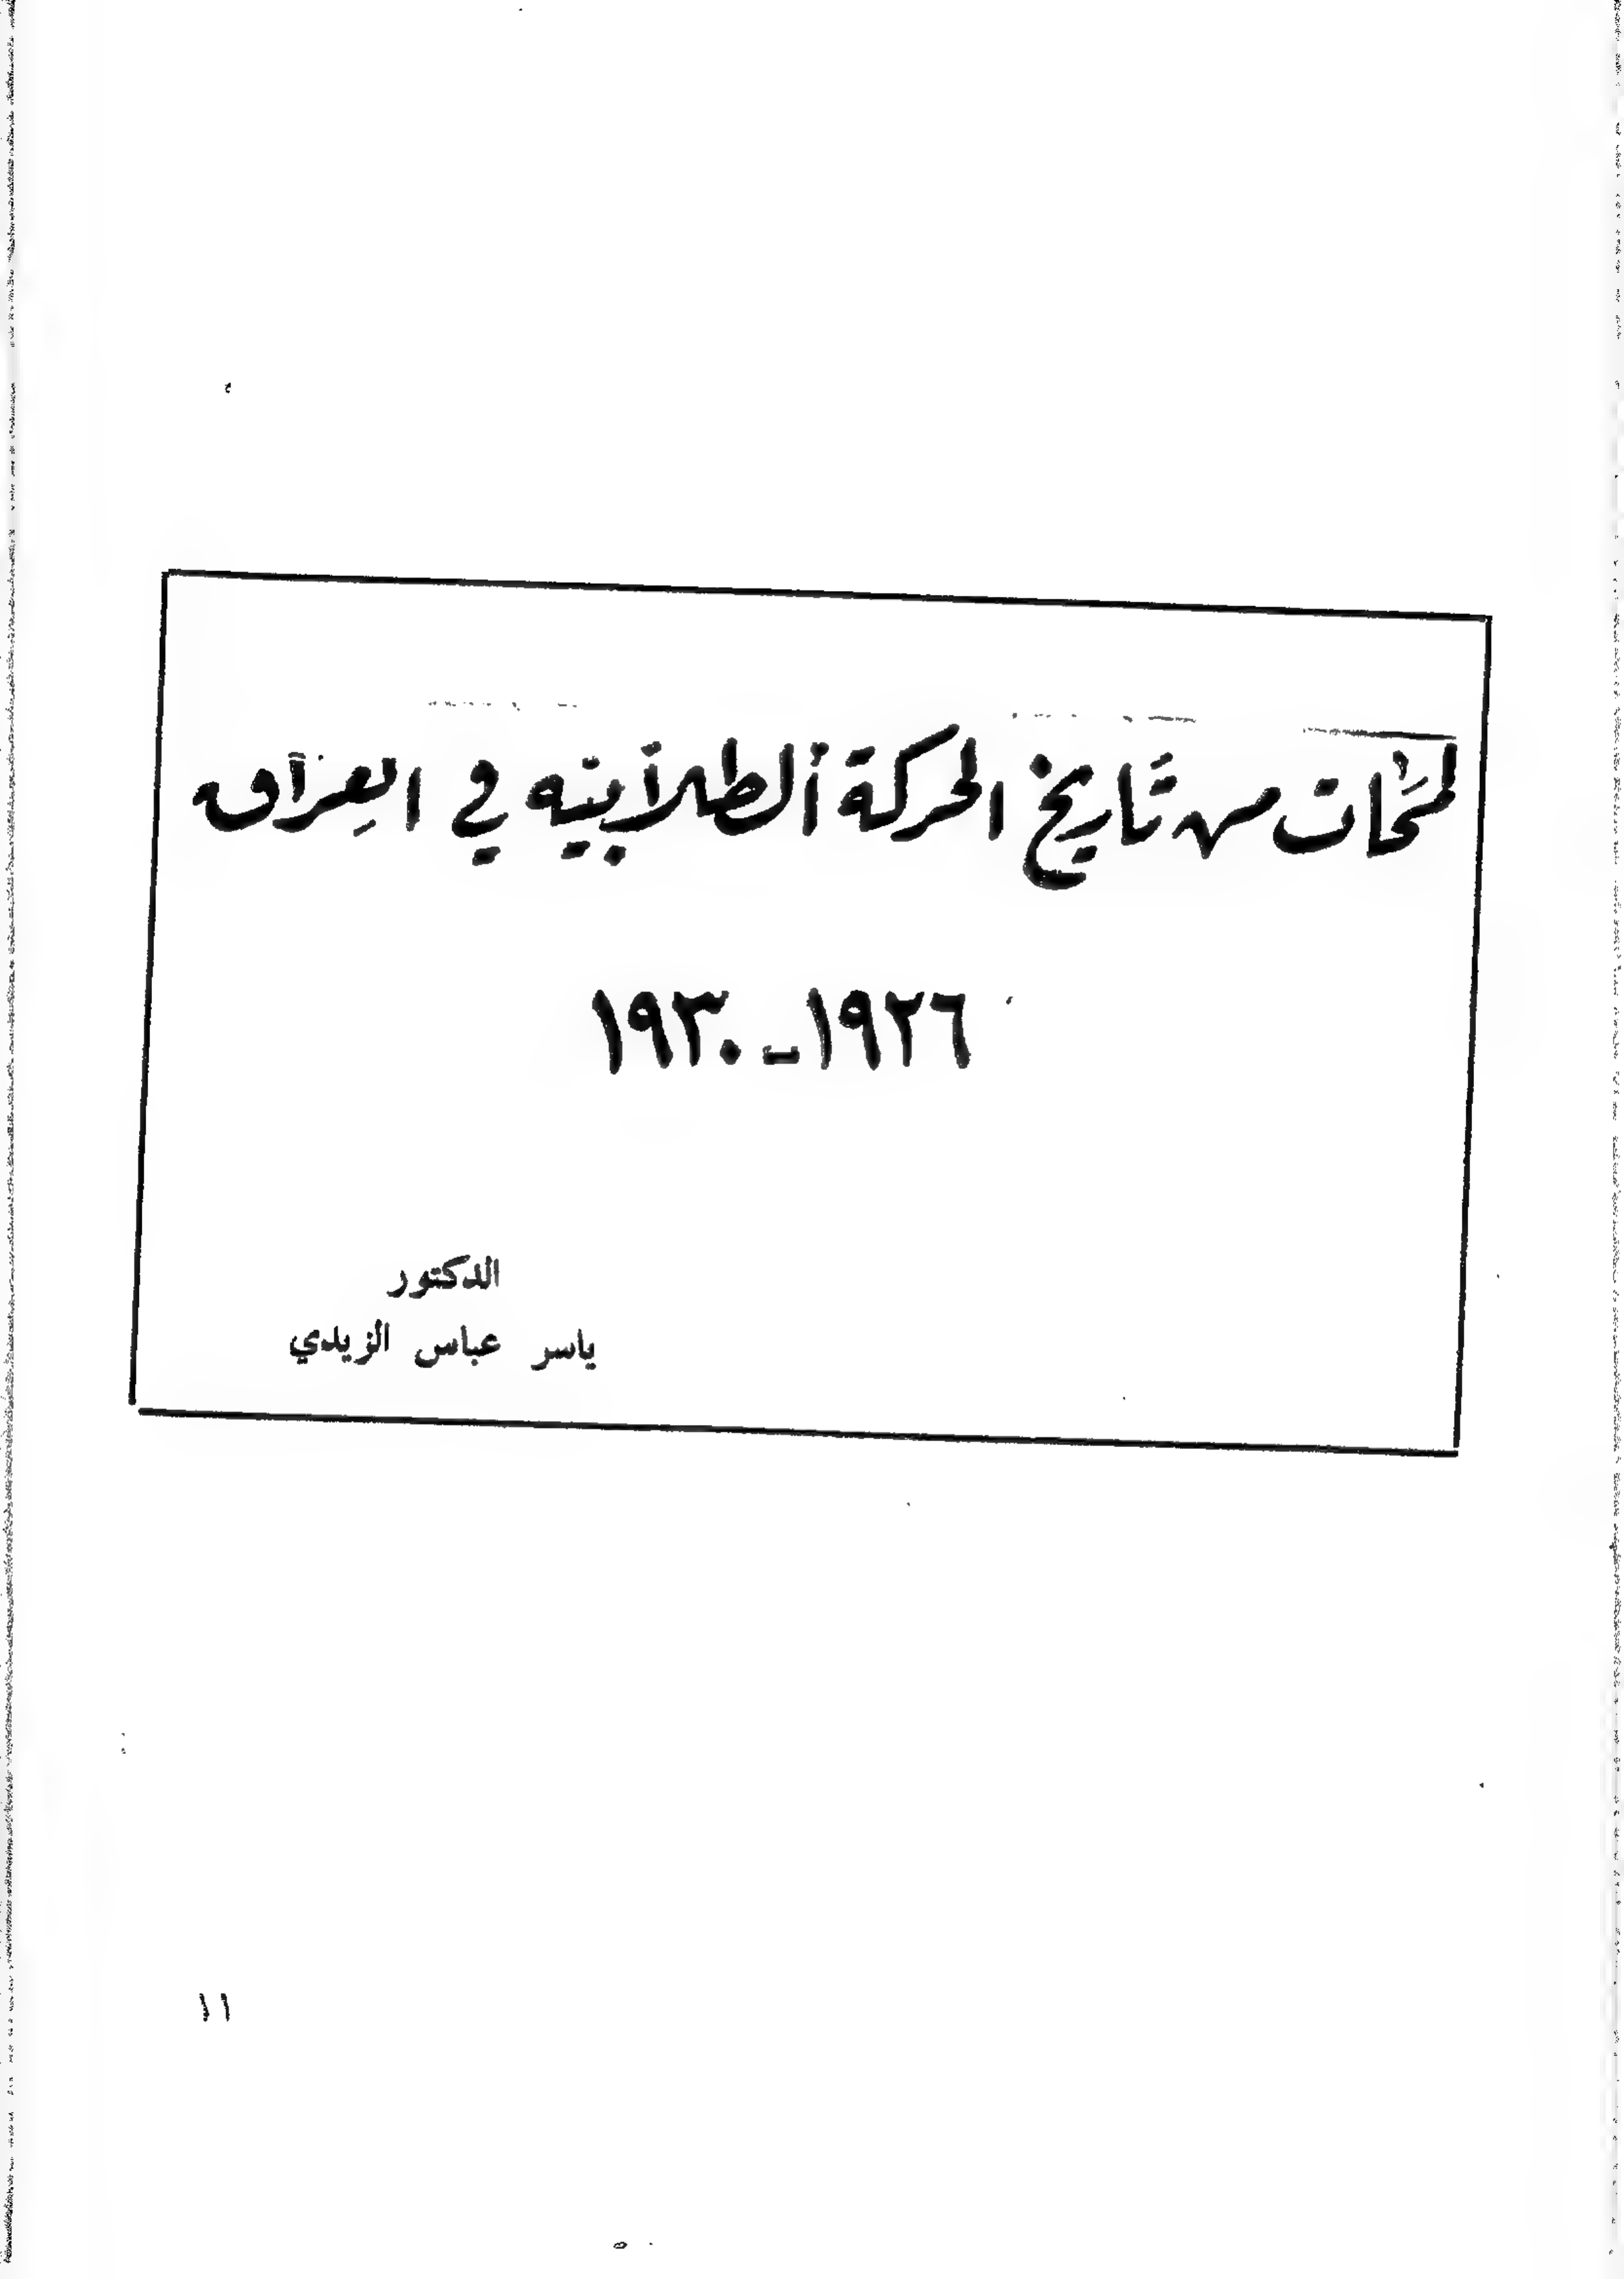 لمحات من تاريخ الحركة الطلابيه في العراق
١٩٢٦ـ١٩٣٠
الدكتور
ياسر عباس الزيدي
١١